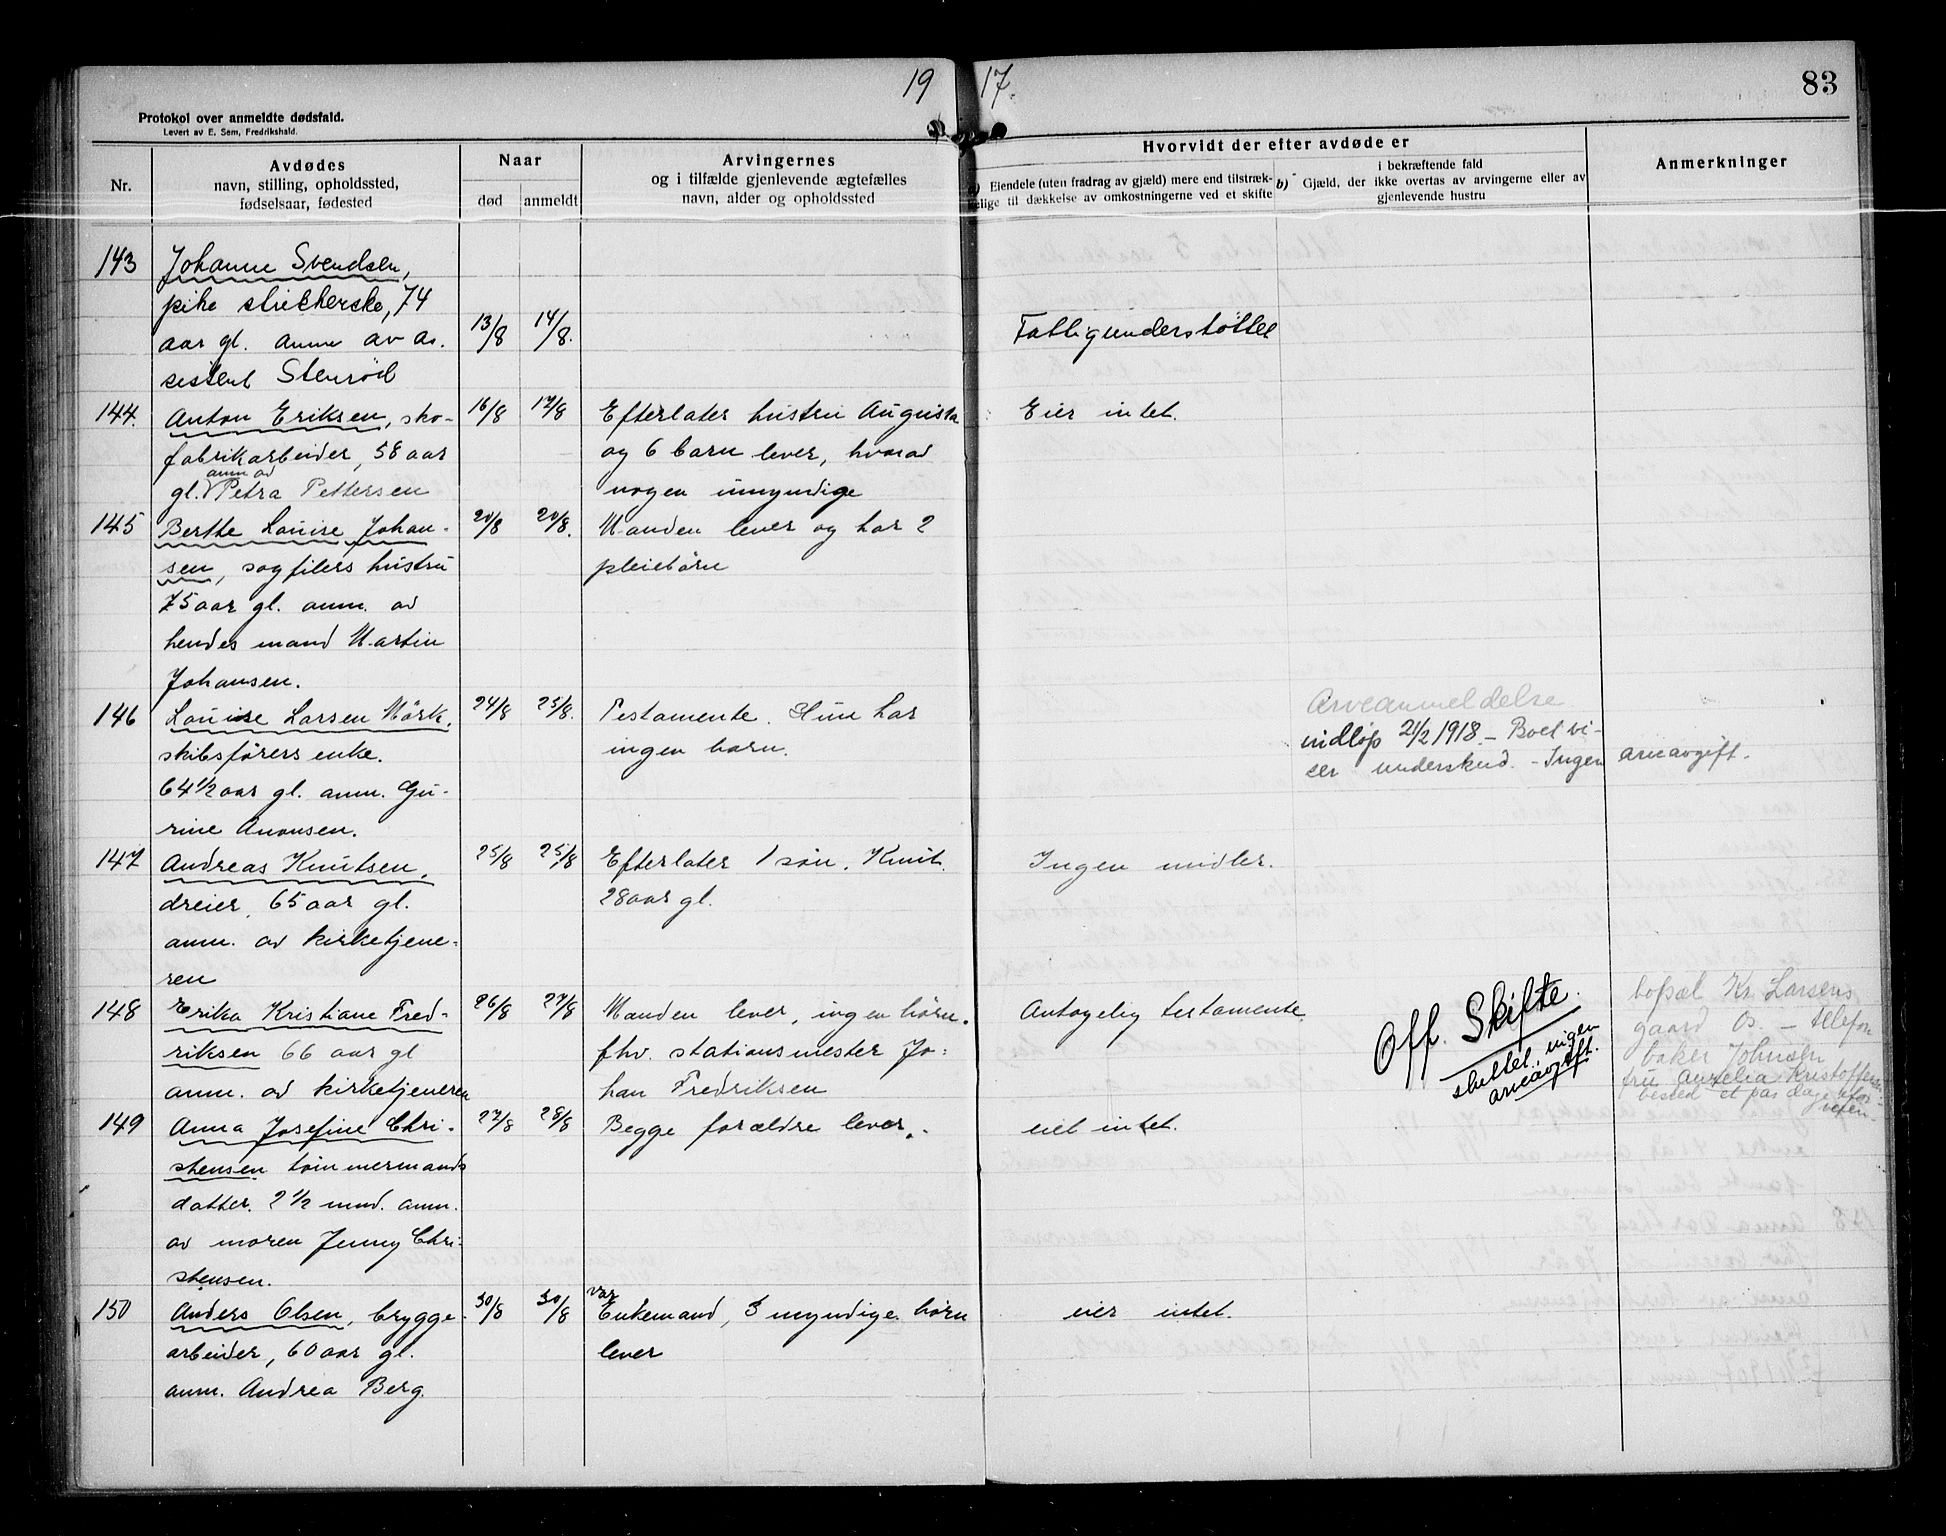 19 17.
83
Protokol over anmeldte dødsfald.
Levert av E. Sem, Fredrikshald.
Nr.
Avdødes
navn, stilling, opholdssted,
fødselsaar, fødested
Naar
død
anmeldt
Arvingernes
og i tilfælde gjenlevende ægtefælles
navn, alder og opholdssted
Hvorvidt der efter avdøde er
a) Eiendele (uten fradrag av gjæld) mere end tilstræk-
kelige til dækkelse av omkostningerne ved et skifte
i bekræftende fald
b) Gjæld, der ikke overtas av arvingerne eller av
gjenlevende hustru
Anmerkninger
143
Johanne Svendsen,
pike strikkerske, 74
aar gl. anm av as.
sistent Stenrød
13/8
14/8.
Fattigunderstøttet
144.
Anton Eriksen, sko-
fabrikarbeider, 58 aar
anm av
gl. Petra Pettersen
16/8
17/8
Efterlater hustru Augusta
og 6 barn lever, hvorav
nogen umyndige
Eier intet.
145
Berthe Louise Johan-
sen, sagfilers hustru
75 aar gl. anm. av
hendes mand Martin
Johansen.
20/8
20/8.
Manden lever og har 2
pleiebørn
146
Louise Larsen Mørk,
skibsførers enke.
64 1/2 aar gl. anm. Gu-
rine Aronsen.
24/8
25/8.
Testamente. Hun har
ingen barn.
Arveanmeldelse
indløp 21/2 1918. - Boet vi-
ser underskud. - Ingen arveavgift.
147
Andreas Knutsen,
dreier, 65 aar gl.
anm. av kirketjene-
ren
25/8
25/8
Efterlater 1 søn. Knut.
28 aar gl.
Ingen midler.
148
Erika Kristiane Fred-
riksen 66 aar gl
anm. av kirketjeneren
26/8
27/8
Manden lever, ingen børn.
fhv. stationsmester Jo-
han Fredriksen
Antagelig testamente.
Off. Skifte.
sluttet, ingen
arveavgift.
bopæl Kr. Larsens
gaard Os. - telefon
baker Johnsen
fru Aurelia Kristoffersen
bested et par dage efor-
149
Anna Josefine Chri-
stensen tømmermands
datter. 2 1/2 mnd. anm.
av moren Jenny Chri-
stensen.
27/8
28/8
Begge forældre lever.
eiet intet.
150
Anders Olsen, brygge-
arbeider, 60 aar gl.
anm. Andrea Berg.
30/8
30/8
var
Enkemand, 3 myndige børn
lever
eier intet.